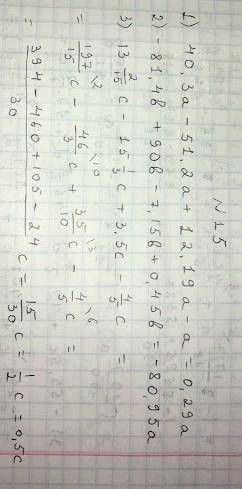 N 15
1) 40,3a - 51,2a + 12,19a - a = 0,29a
2) -81,4b + 90b - 7,15b + 0,45b = -80,95a
3) 13 2/15 c - 15 1/3 c + 3,5c - 4/5 c =
= 197/15 \2 c - 46/3 \10 c + 35/10 \3 c - 4/5 \6 c =
= (394 - 460 + 105 - 24)/30 c = 15/30 c = 1/2 c = 0,5c